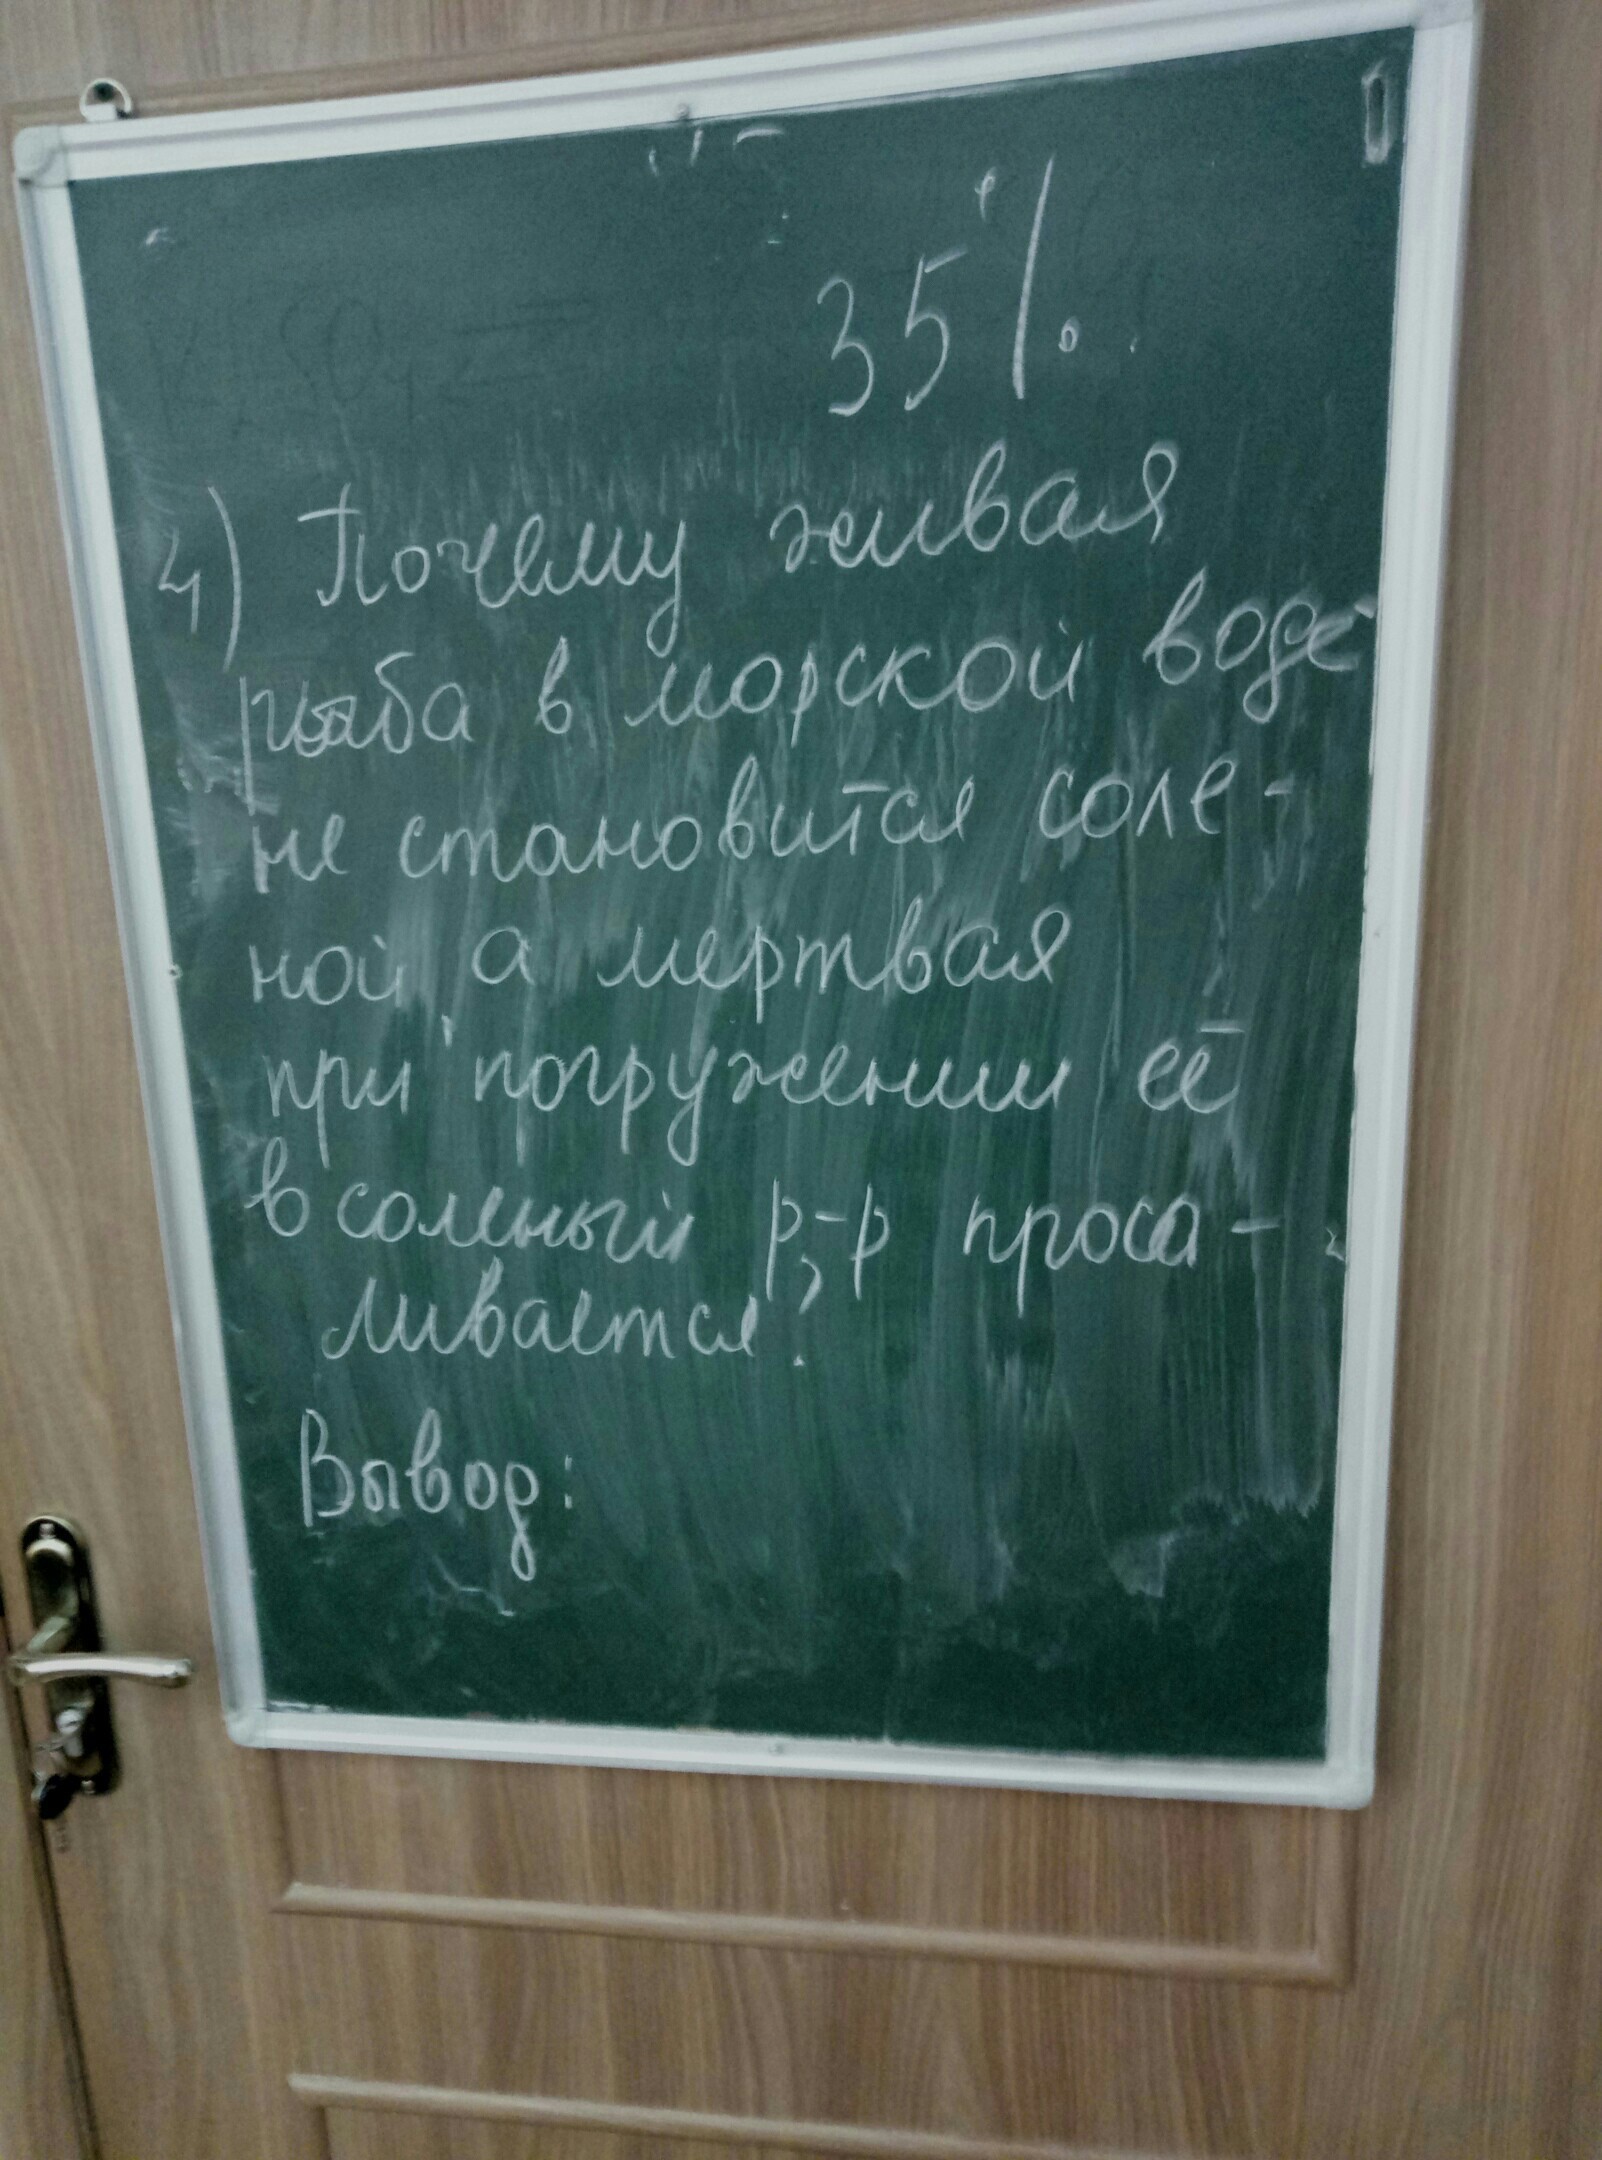 35%
4) Почему живая
рыба в морской воде
не становится соле-
ной, а мертвая
при погружении её
в соленый р-р проса-
ливается?
Вывод: